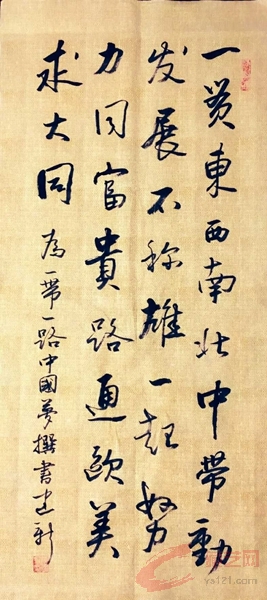 一贯東西南北中带動
发展不称雄一起努
力同富貴路通欧美
求大同
為一带一路中國夢撰書建新
ys121.com